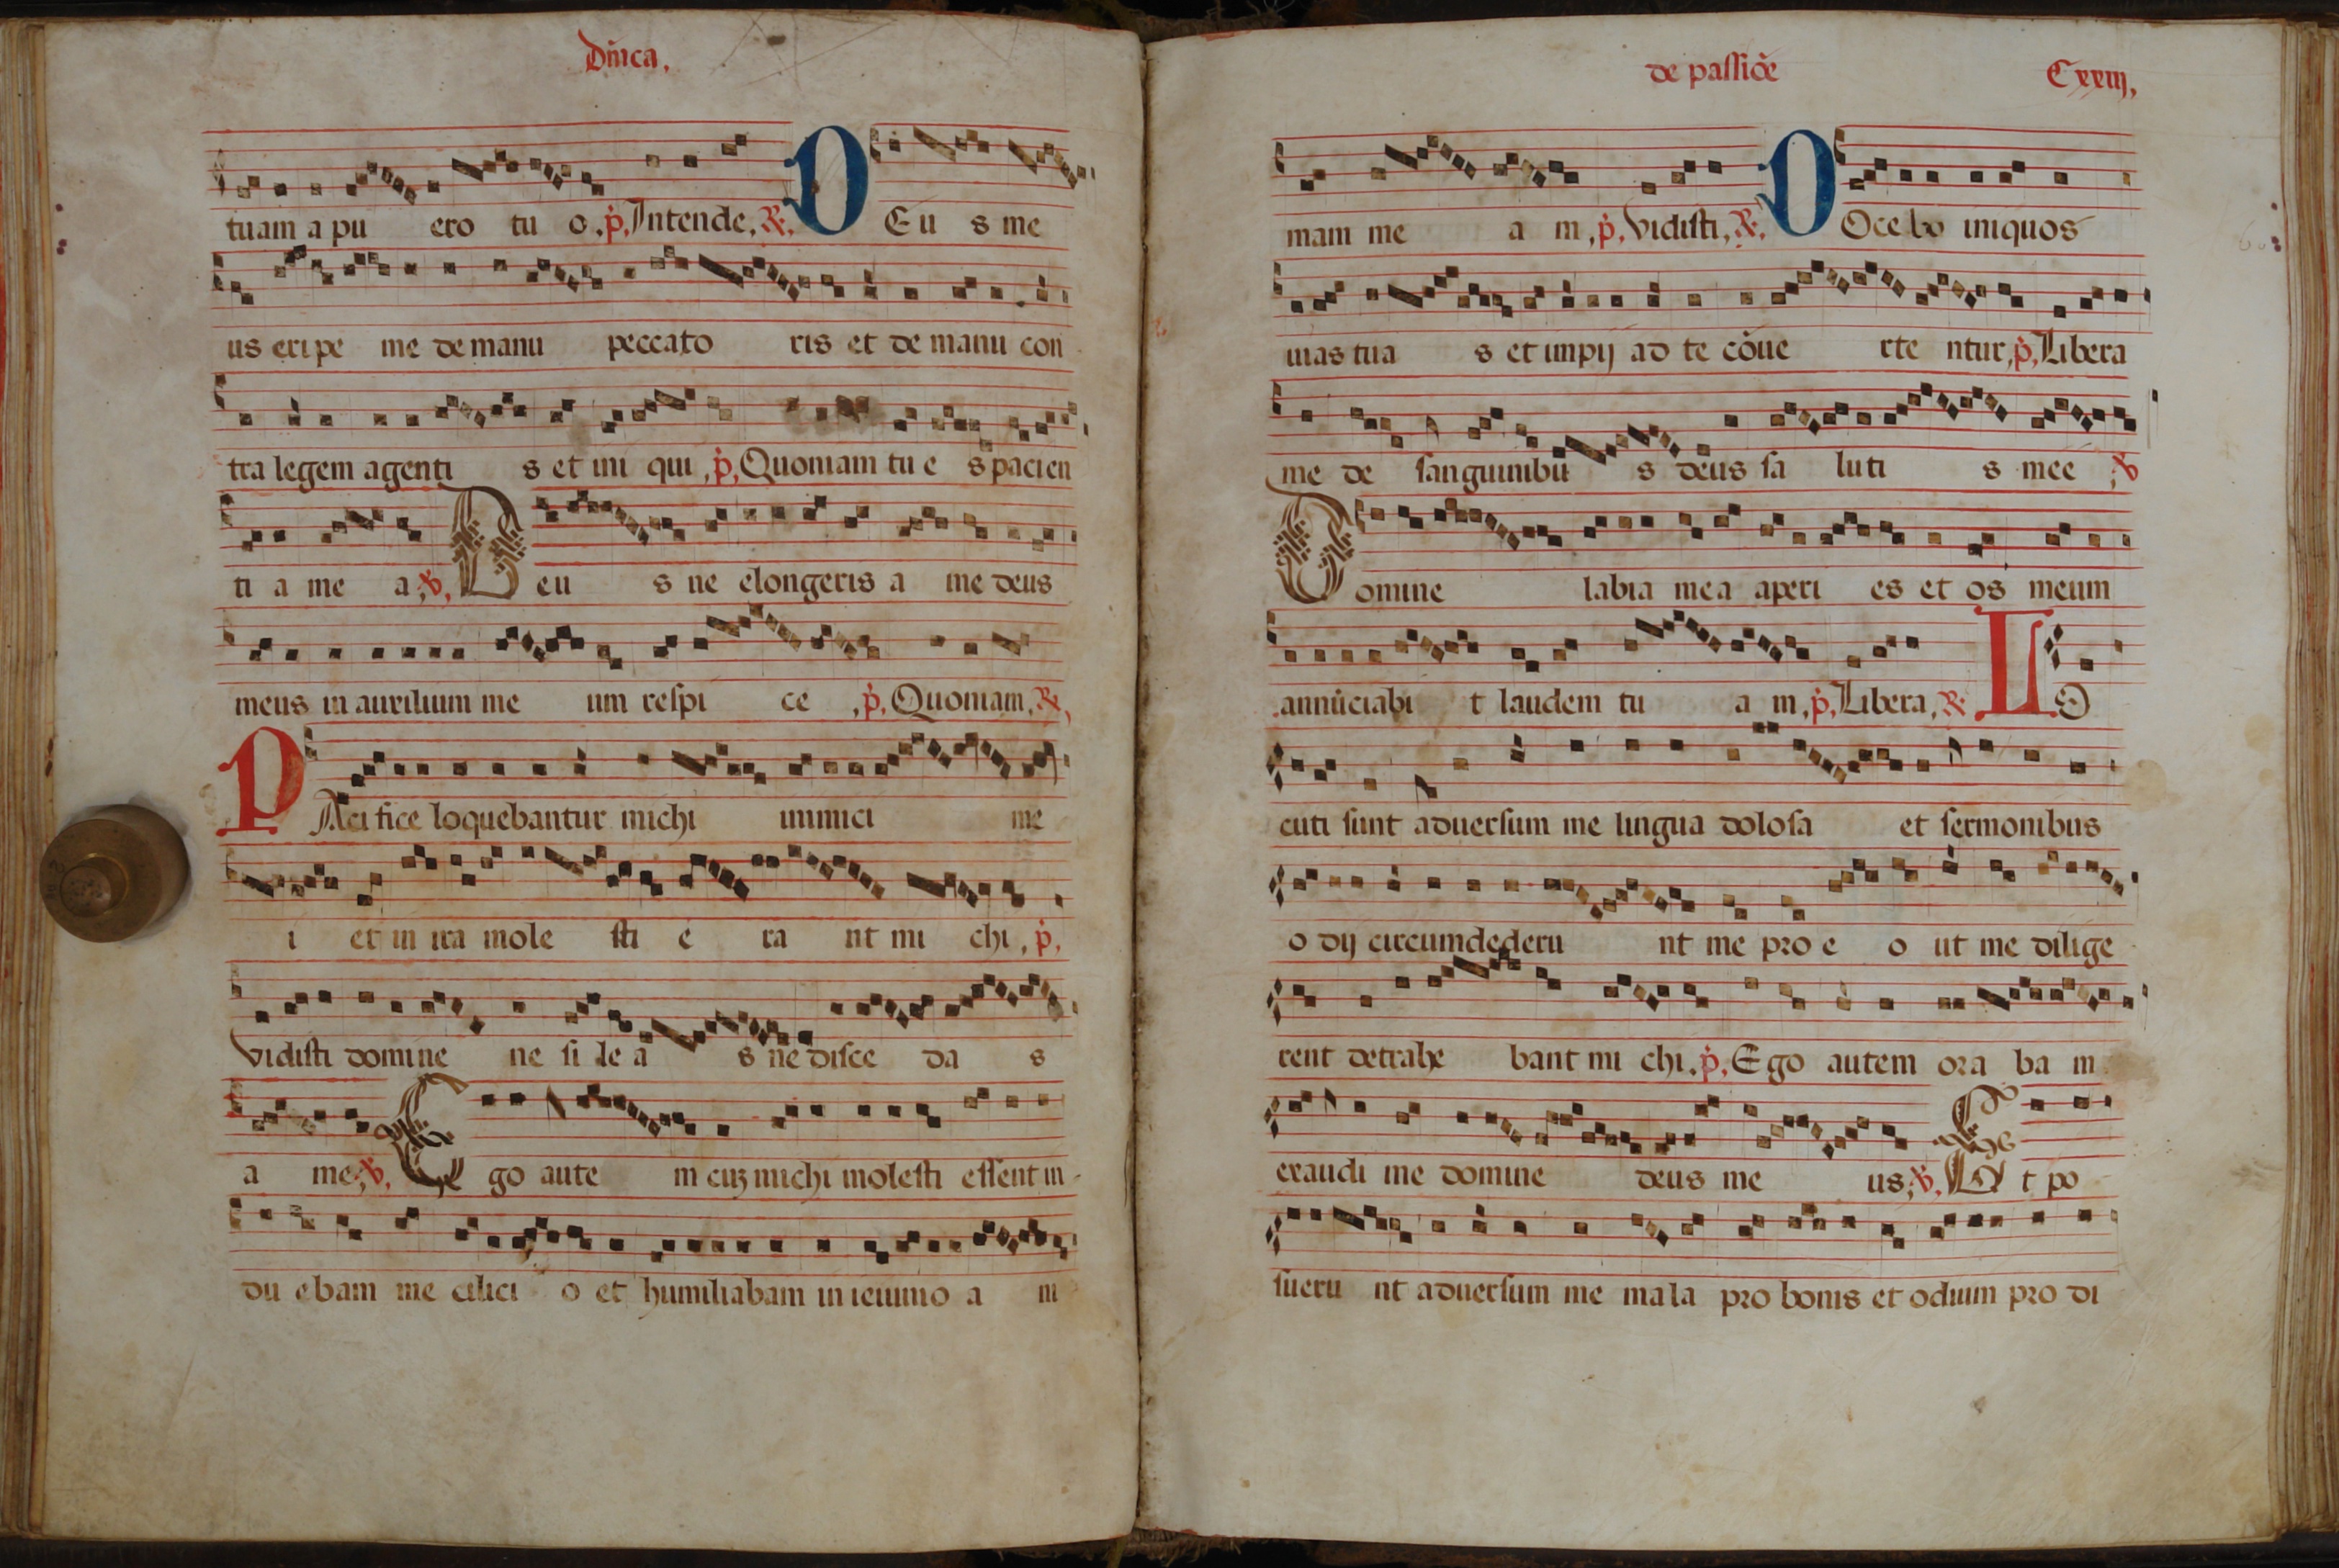 Dñica.
tuam a pu ero tu o. p̄. Intende, R. D Eu s me
us eripe me de manu peccato ris et de manu con
tra legem agenti s et ini qui, p̄, Quoniam tu e s pacien
ti a me a; V. D eu s ne elongeris a me deus
meus in auxilium me um respi ce, p̄. Quoniam, R,
P Aci fice loquebantur michi inimici me
i et in ira mole sti e ra nt mi chi, p̄,
vidisti domine ne si le a s ne disce da s
a me; V, E go aute m cuʒ michi molesti essent in
du ebam me cilici o et humiliabam in ieiunio a ni
de passiõe Cxxiij,
mam me a m, p̄, Vidisti, R, D Oce bo iniquos
uias tua s et impij ad te cõue rte ntur, p̄, Libera
me de sanguinibu s deus sa luti s mee; V
D omine labia mea aperi es et os meum
annũciabi t laudem tu a m, p̄, Libera, R L O
cuti sunt aduersum me lingua dolosa et sermonibus
o dij circumdederu nt me pro e o ut me dilige
rent detrahe bant mi chi, p̄, Ego autem ora ba m
exaudi me domine deus me us; V, E t po
sueru nt aduersum me mala pro bonis et odium pro di